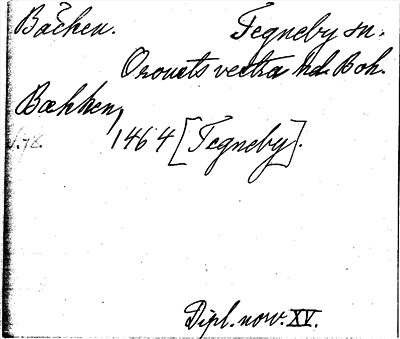 Bäcken. Tegneby sn.
Orousts vestra hd. Boh.
Bækken,
1464 [Tegneby].
Dipl. norv. XV.